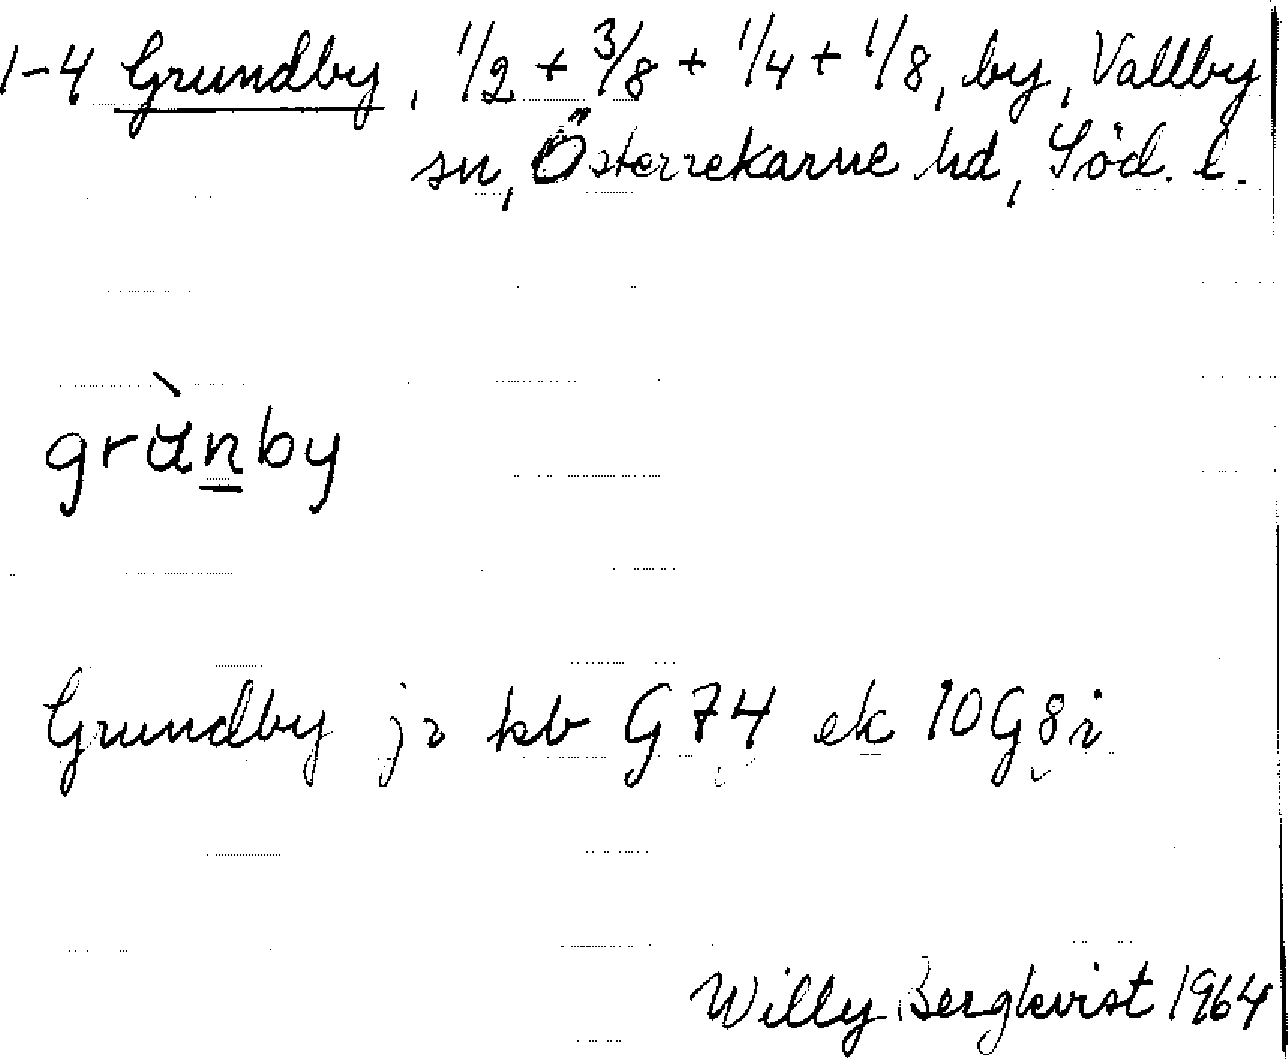 1-4 Grundby, 1/2 + 3/8 + 1/4 + 1/8, by, Vallby
sn, Österrekarne hd, Söd. l.
grùnby
Grundby jr kb G74 ek 10G8i
Willy Bergkvist 1964